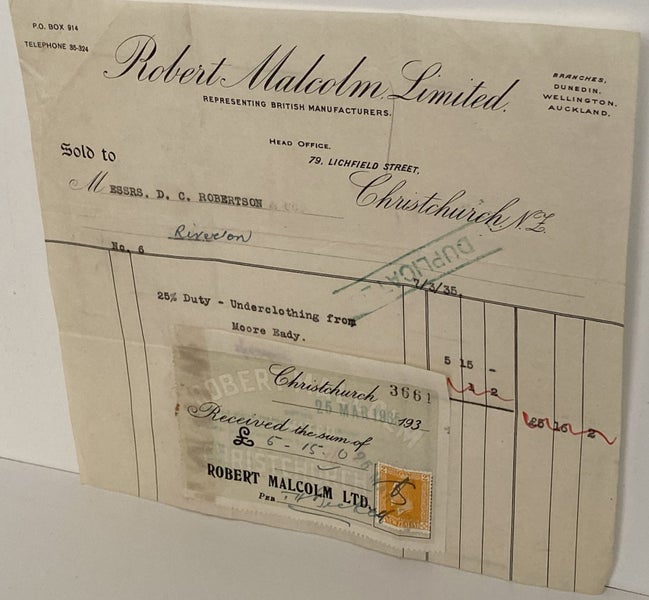 P.O. BOX 914
TELEPHONE 35-324
Robert Malcolm Limited.
REPRESENTING BRITISH MANUFACTURERS.
BRANCHES,
DUNEDIN.
WELLINGTON.
AUCKLAND.
HEAD OFFICE.
79, LICHFIELD STREET,
Christchurch, N.Z.
Sold to
MESSRS. D. C. ROBERTSON
No. 6
DUPLICATE
7/3/35.
25% Duty - Underclothing from
Moore Eady.
5 15 -
1 2
Christchurch 3661
25 MAR 1935 193
Received the sum of
£ 5 - 15 - 0
ROBERT MALCOLM LTD.
PER